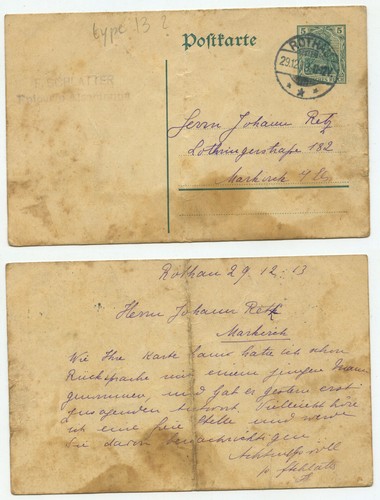 type 13 ?
Postkarte
5 5
ROTHAU
29.12.13
SCHLATTER
Herrn Johann Retz
Lothringerstraße 182
Markirch
Rothau 29 12. 13
Herrn Johann Retz
Markirch
Wie Ihre Karte kam hatte ich schon
Rücksprache mit einem jungen Mann
genommen, und hat er gestern erst
zusagenden Antwort Vielleicht höre
ich eine freie Stelle und werde
Sie davon benachrichtigen
Achtungsvoll